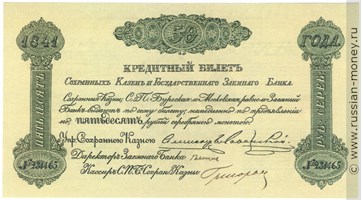 1841 50 ГОДА.
КРЕДИТНЫЙ БИЛЕТЪ
Сохранныхъ Казенъ и Государственнаго Заемнаго Банка.
Сохранныя Казны С.П.Бургская и Московская равно и Заемный
Банкъ по сему билету немедленно по предъявленіи
пятьдесятъ рублей серебряною монетою.
Упр. Сохранною Казною
Директоръ Заемнаго Банка
Кассиръ С.П.Б. Сохран. Казны
ПЯТЬДЕСЯТЪ
№231465
№231465
www.russian-money.ru